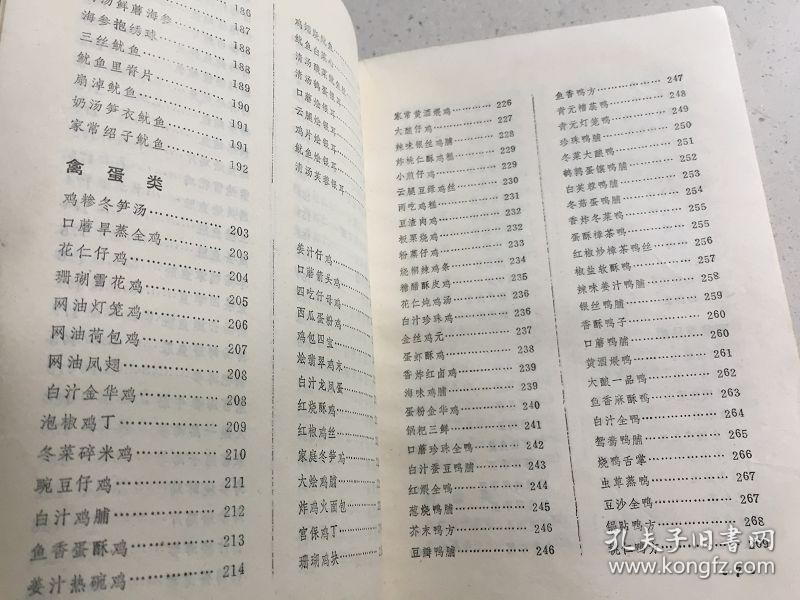 汤鲜蘑海参……186
海参抱绣球……187
三丝鱿鱼……188
鱿鱼里脊片……189
扇淖鱿鱼……190
奶汤笋衣鱿鱼……191
家常绍子鱿鱼……191
192
禽蛋类
鸡糁冬笋汤……203
口蘑旱蒸全鸡……203
花仁仔鸡……204
珊瑚雪花鸡……205
网油灯笼鸡……206
网油荷包鸡……207
网油凤翅……208
白汁金华鸡……208
泡椒鸡丁……209
冬菜碎米鸡……210
豌豆仔鸡……211
白汁鸡脯……212
鱼香蛋酥鸡……213
姜汁热碗鸡……214
鱿鱼白菜心
清汤酸菜鱿鱼
清汤鸽蛋银耳
口蘑烩银耳
云腿烩银耳
鸡片烩银耳
鱿鱼烩银耳
清汤芙蓉银耳
姜汁仔鸡
口蘑箭头鸡
四吃仔母鸡
西瓜蛋粉鸡
鸡包四宝
烩翡翠鸡末
白汁龙凤蛋
红烧酥鸡
红椒鸡丝
家庭冬笋鸡
大烩鸡脯
炸鸡火面包
宫保鸡丁
珊瑚鸡块
家常黄酒煨鸡……226
大酿仔鸡……227
辣味银丝鸡脯……228
炸桃仁酥鸡糕……229
小煎仔鸡……229
云腿豆绿鸡丝……230
两吃鸡糕……230
豆渣肉鸡……231
板栗烧鸡……232
粉蒸仔鸡……233
烧椒辣鸡条……234
糖醋酥皮鸡……235
花仁炖鸡汤……236
白汁珍珠鸡……236
金丝鸡元……237
蛋虾酥鸡……238
香炸红卤鸡……239
海味鸡脯……239
蛋粉金华鸡……240
锅杷三鲜……241
口蘑珍珠全鸭……242
白汁蚕豆鸭脯……243
红煨全鸭……244
葱烧鸭脯……245
芥末鸭方……246
豆瓣鸭脯……246
鱼香鸭方……247
青元糟蒸鸭……248
青元灯笼鸭……249
珍珠鸭脯……250
冬菜大酿鸭……251
鹌鹑蛋镶鸭脯……252
白芙蓉鸭脯……253
冬菇蛋鸭脯……254
香炸冬菜鸭……255
蛋酥樟茶鸭……255
红椒炒樟茶鸭丝……256
椒盐软酥鸭……257
辣味姜汁鸭脯……258
银丝鸭脯……259
香酥鸭子……260
口蘑鸭脯……260
黄酒煨鸭……261
大酿一品鸭……262
鱼香麻酥鸭……263
白汁全鸭……264
鸳鸯鸭脯……265
烧鸭舌掌……266
虫草蒸鸭……267
豆沙全鸭……267
锅贴鸭方……268
桃仁鸭方……269
孔夫子旧书网
www.kongfz.com